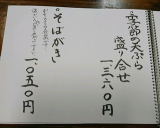 季節の天ぷら
盛り合せ
一、三六〇円
そばがき
一、〇五〇円